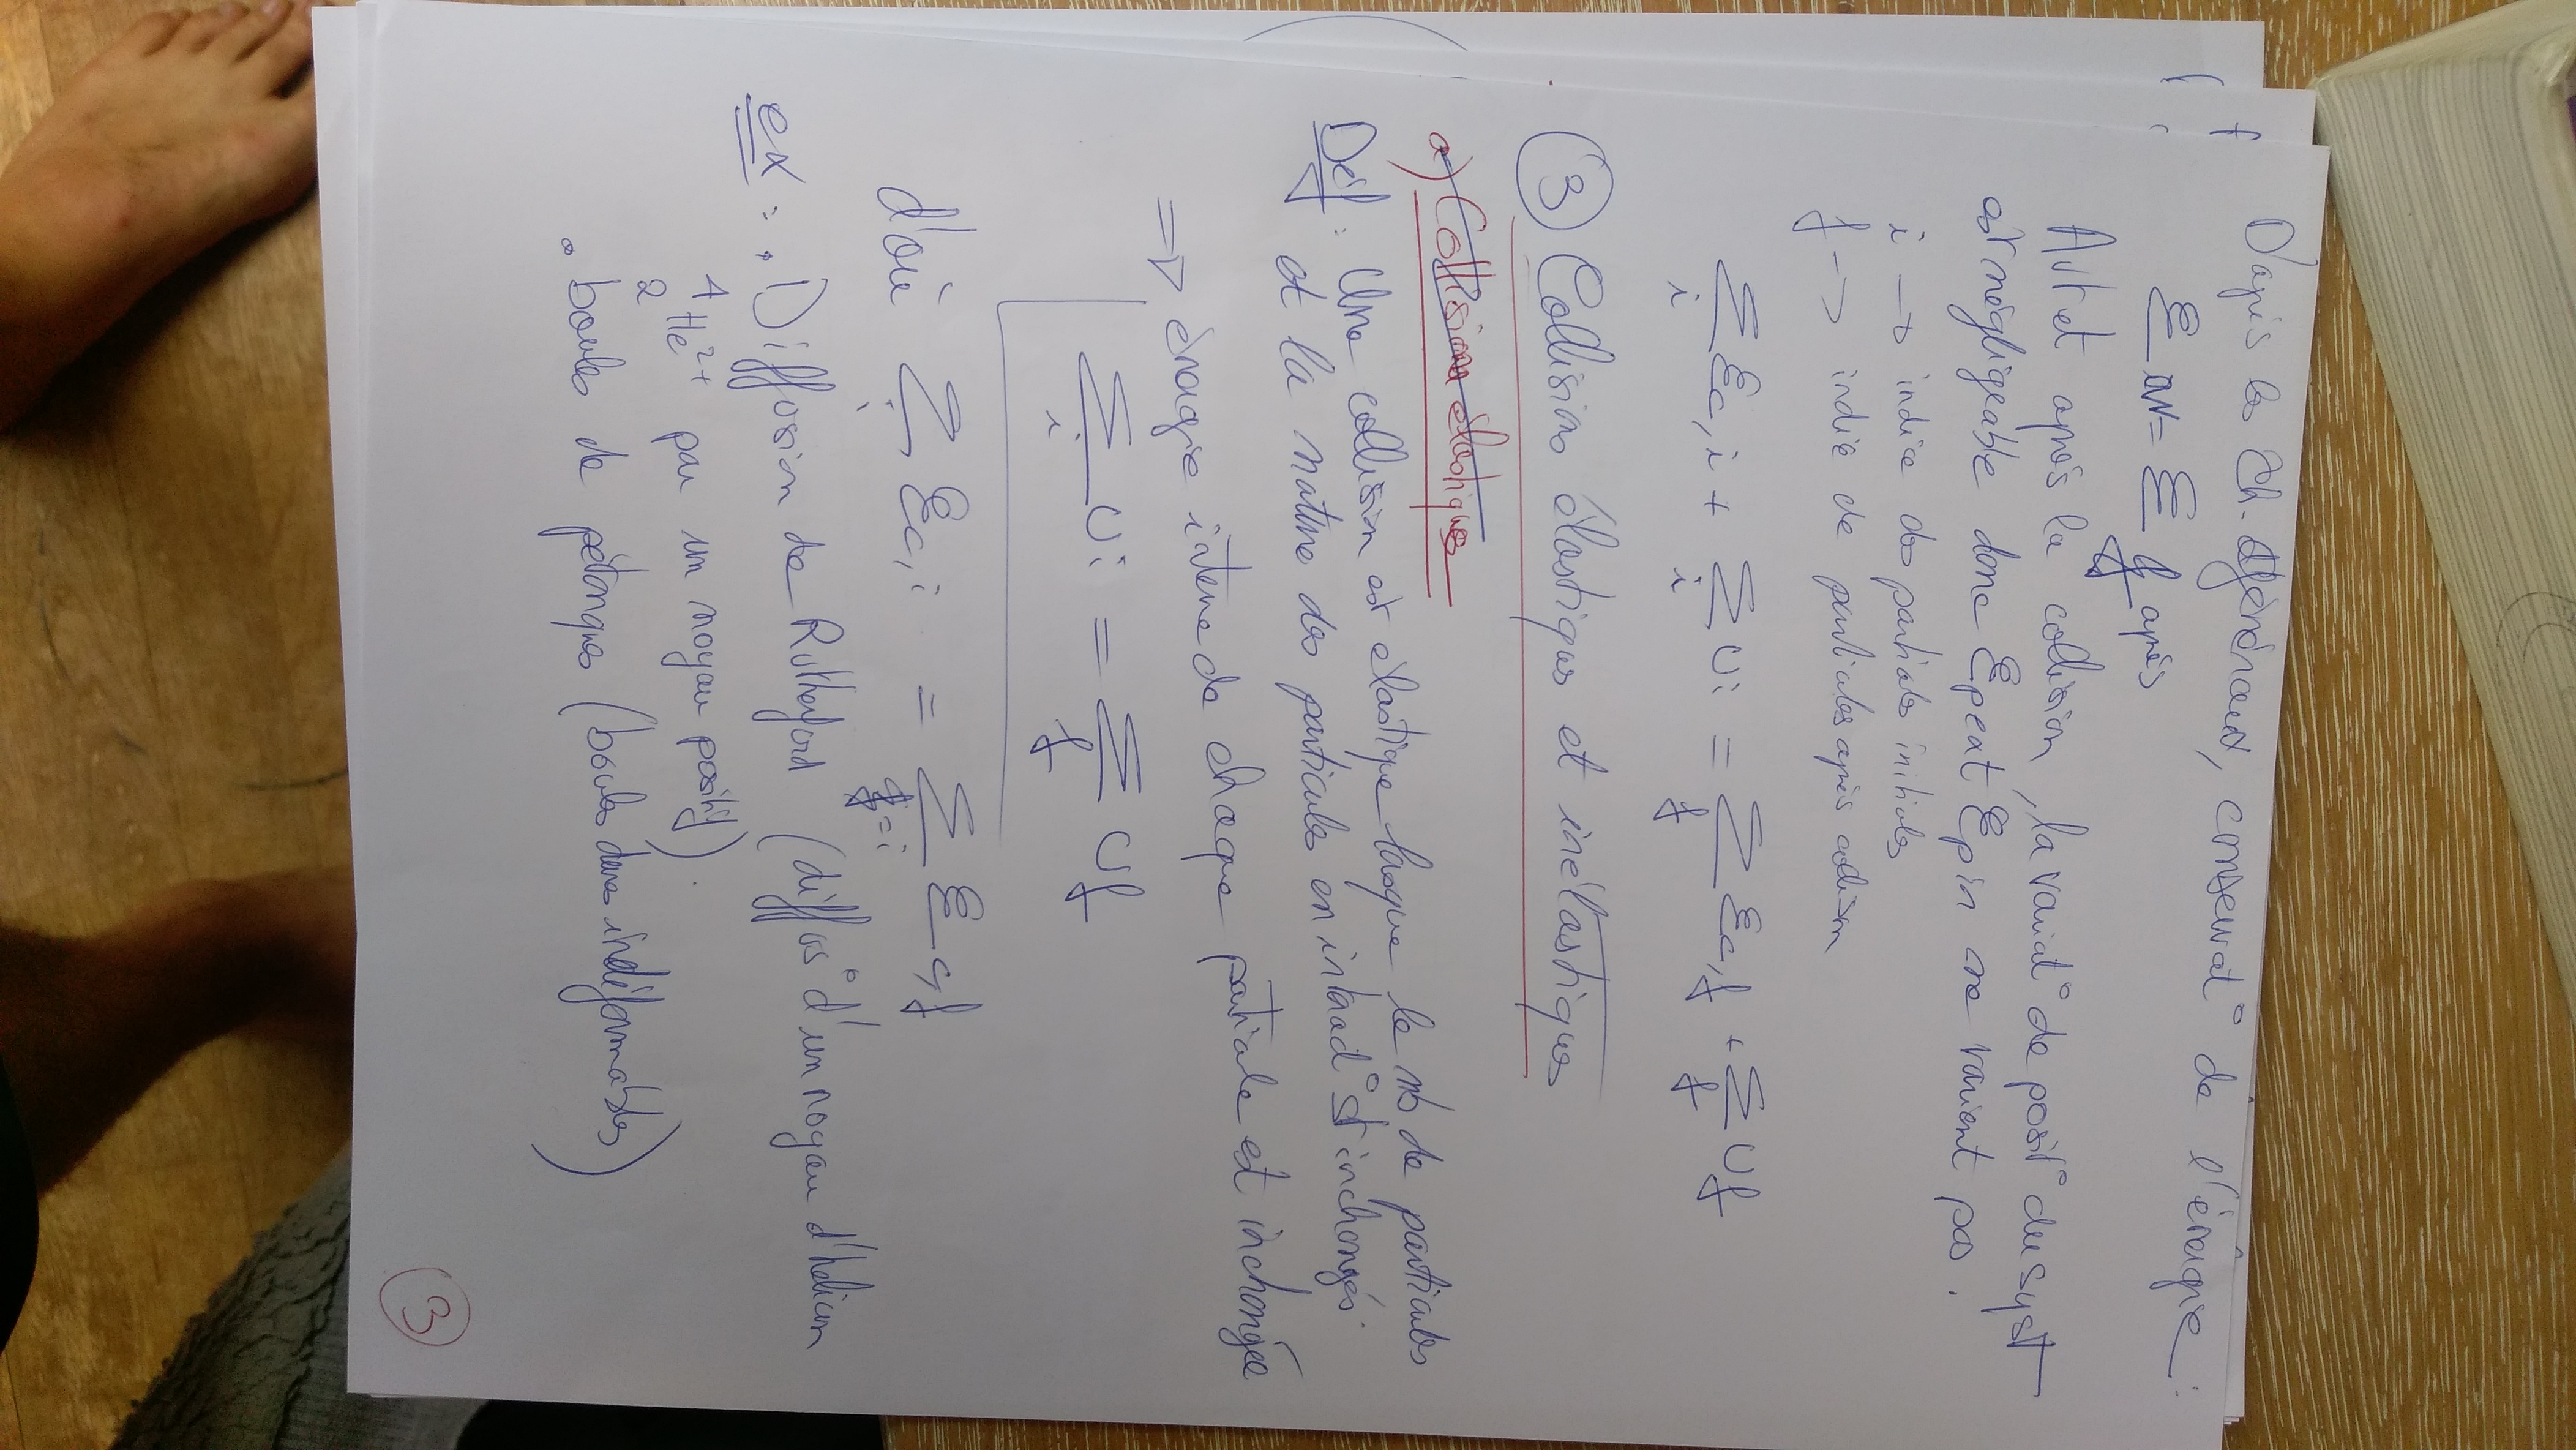 D'après les th. généraux, conservat° de l'énergie :
E av = E après
Avt et après la collision, la variat° de posit° du syst
est négligeable donc Ep ext Ep in ne varient pas.
i → indice des particules initiales
f → indice de particules après collision
∑i Ec,i + ∑i Ui = ∑f Ec,f + ∑f Uf
③ Collisions élastiques et inélastiques
a) Collisions élastiques
Déf : Une collision est élastique lorsque le nb de particules
et la nature des particules en interact° st inchangés
⇒ énergie interne de chaque particule est inchangée
∑i Ui = ∑f Uf
d'où ∑i Ec,i = ∑f=i Ec,f
ex : . Diffusion de Rutherford (diffus° d'un noyau d'hélium
4 2 He2+ par un noyau positif).
. boules de pétanques (boules dures indéformables)
3